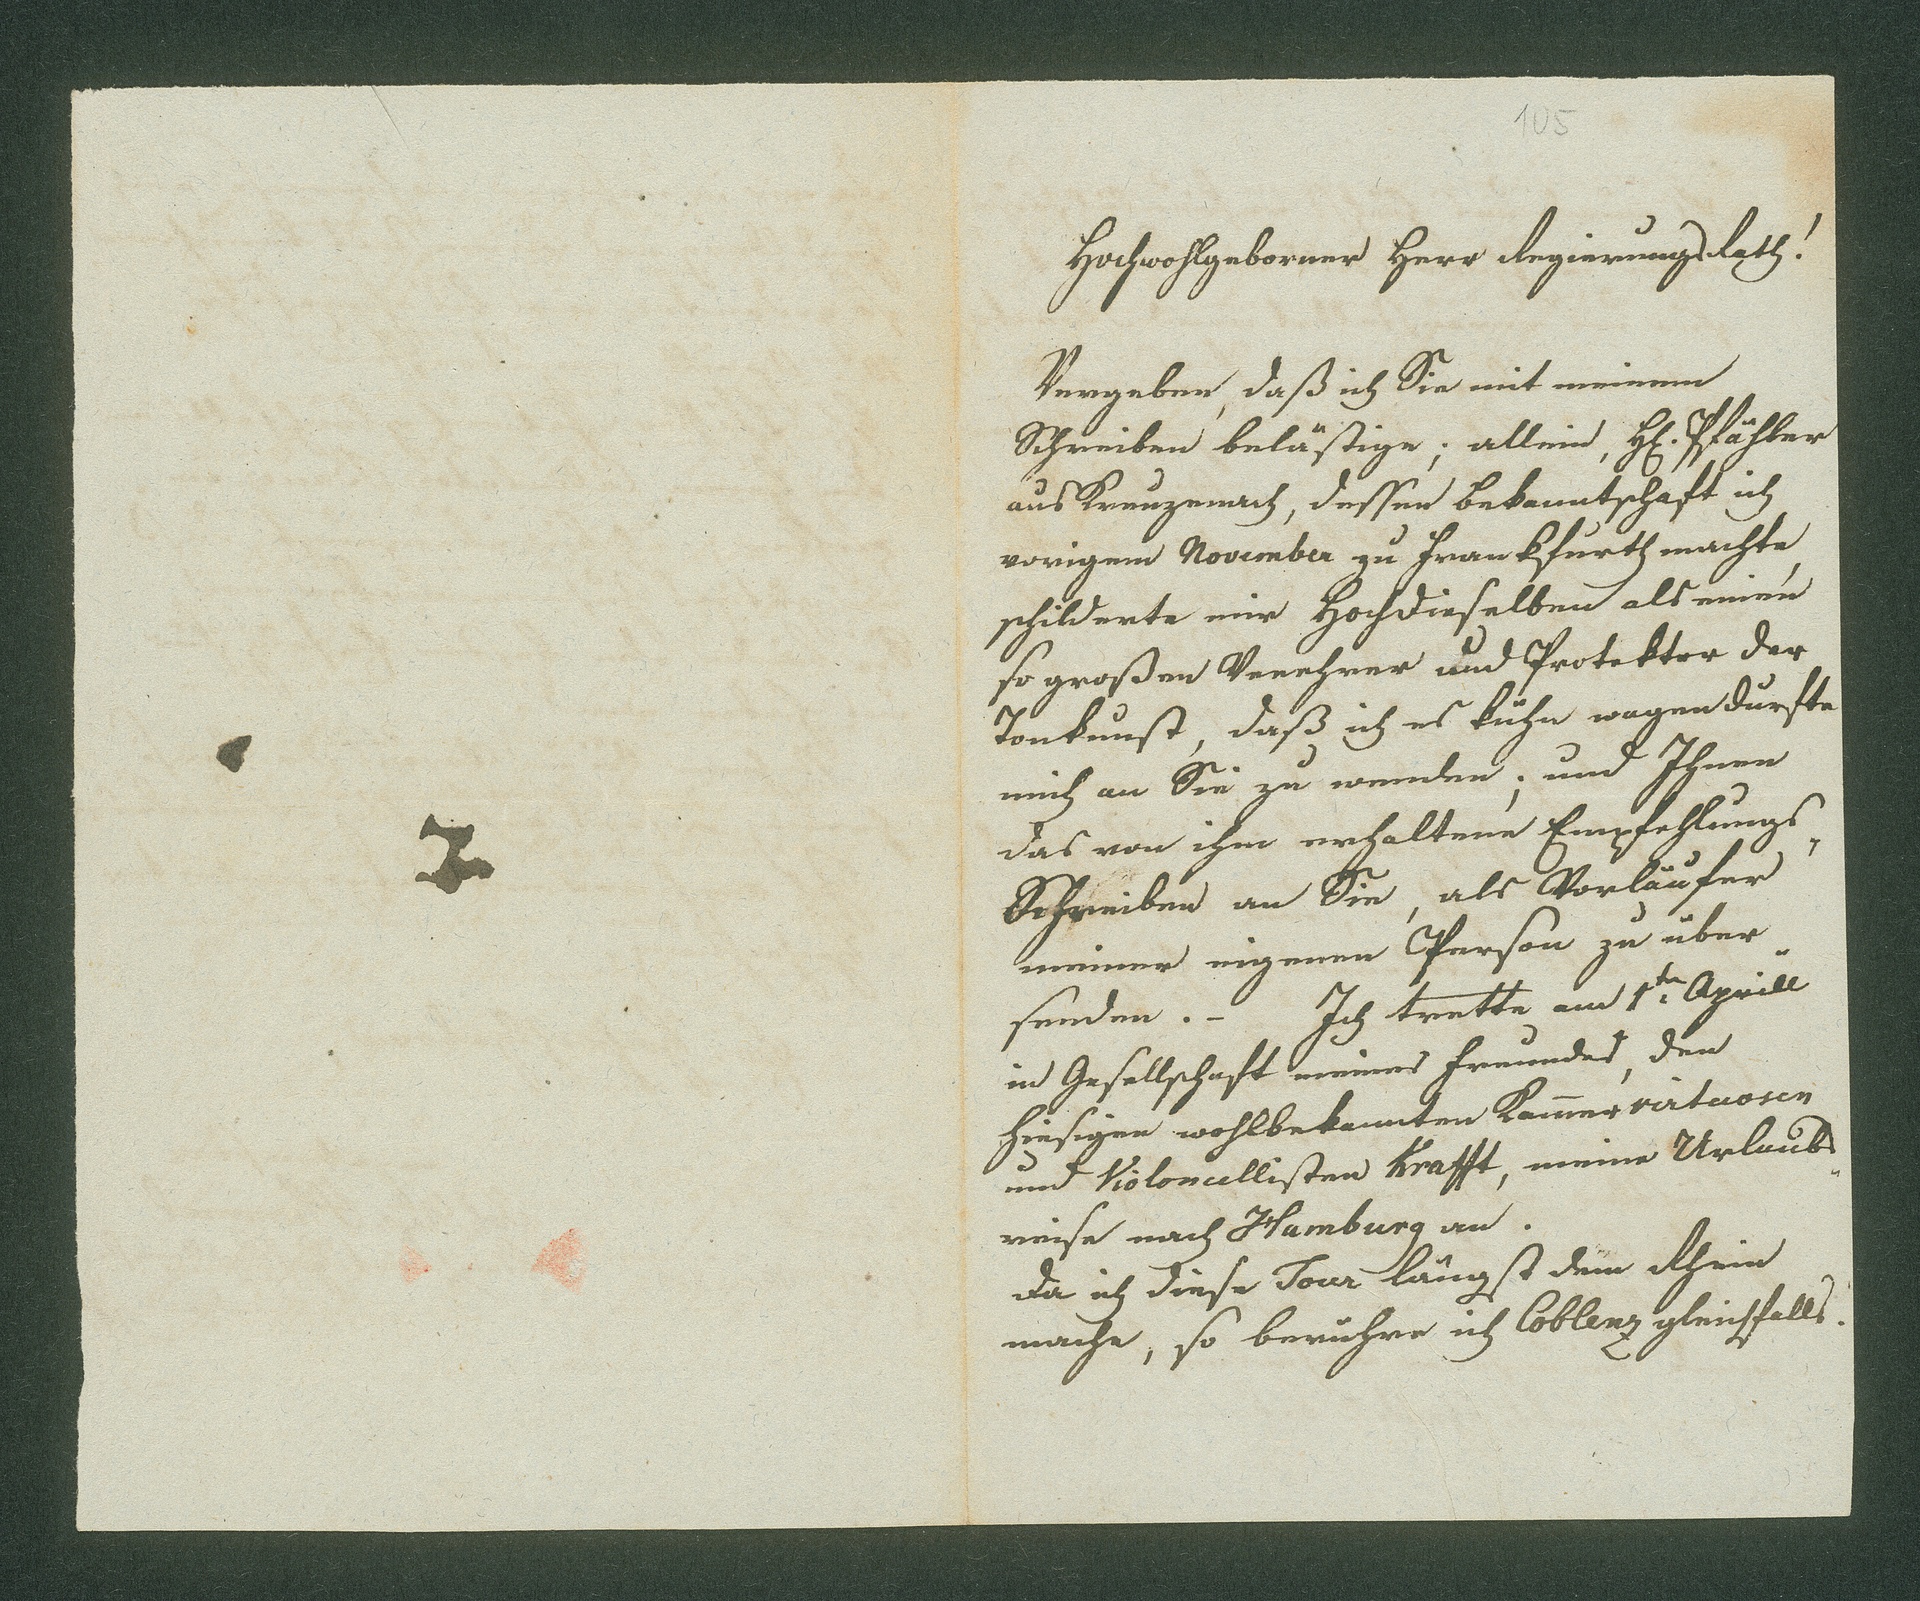 105
Hochwohlgeborner Herr RegierungsRath!
Vergeben, daß ich Sie mit meinem
Schreiben belästige; allein, H. Pfähler
aus Kreuzenach, dessen Bekanntschaft ich
vorigem November zu Frankfurth machte,
schilderte mir Hochdieselben als einen
so großen Verehrer und Protektor der
Tonkunst, daß ich es kühn wagen durfte
mich an Sie zu wenden; und Ihnen
das von ihm erhaltene Empfehlungs-
Schreiben an Sie, als Vorläufer
meiner eigenen Person zu über-
senden. – Ich trette am 1ten Aprill
in Gesellschaft meines Freundes, den
hiesigen wohlbekannten Kam̅ervirtuosen
und Violoncellisten Krafft, meine Urlaubs-
reise nach Hamburg an.
Da ich diese Tour längst dem Rhein
mache, so berühre ich Coblenz gleichfalls.